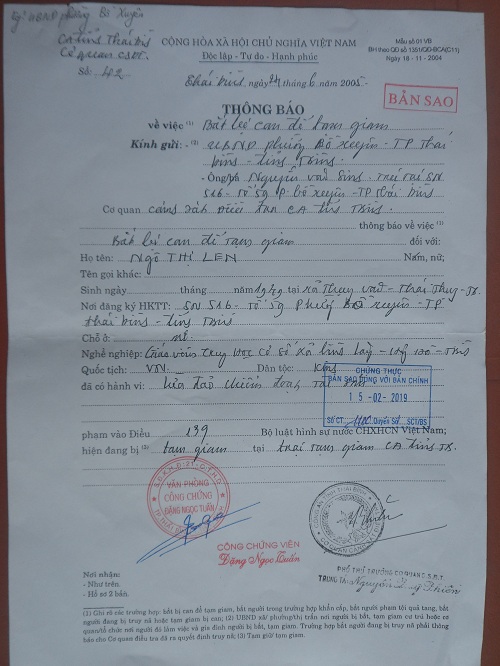 Kg: UBND phường Bồ Xuyên
CA tỉnh Thái Bình
Cơ quan CSĐT
Số: 402
CỘNG HÒA XÃ HỘI CHỦ NGHĨA VIỆT NAM
Độc lập - Tự do - Hạnh phúc
Mẫu số 01 VB
BH theo QĐ số 1351/QĐ-BCA(C11)
Ngày 18 - 11 - 2004
Thái Bình, ngày 24 tháng 6 năm 2005
BẢN SAO
THÔNG BÁO
về việc (1) Bắt bị can để tạm giam
Kính gửi: - (2) UBND phường Bồ Xuyên - TP Thái
Bình - tỉnh
- Ông/bà Nguyễn Văn Trú tại SN
516 - Tổ 59 P. Bồ Xuyên - TP Thái Bình
Cơ quan cảnh sát điều tra CA tỉnh
thông báo về việc (1)
Bắt bị can để tạm giam đối với:
Họ tên: NGÔ THỊ LEN Nam, nữ;
Tên gọi khác:
Sinh ngày tháng năm 1949 tại xã Thụy - Thái Thụy - TB.
Nơi đăng ký HKTT: SN 516 - Tổ 59 Phường Bồ Xuyên - TP
Thái Bình - tỉnh
Chỗ ở: nt
Nghề nghiệp: Giáo viên trung học cơ sở xã
Quốc tịch: VN Dân tộc: Kinh
đã có hành vi: Lừa đảo chiếm đoạt tài
CHỨNG THỰC
BẢN SAO ĐÚNG VỚI BẢN CHÍNH
15 -02- 2019
Số CT Quyển Số SCT/BS
phạm vào Điều 139 Bộ luật hình sự nước CHXHCN Việt Nam;
hiện đang bị (3) tạm giam tại trại tạm giam CA tỉnh TB.
VĂN PHÒNG
CÔNG CHỨNG
ĐẶNG NGỌC TUẤN
CÔNG CHỨNG VIÊN
Đặng Ngọc Tuấn
PHÓ THỦ TRƯỞNG CƠ QUAN C.S.Đ.T
TRUNG TÁ: Nguyễn
Nơi nhận:
- Như trên.
- Hồ sơ 2 bản.
(1) Ghi rõ các trường hợp: bắt bị can để tạm giam, bắt người trong trường hợp khẩn cấp, bắt người phạm tội quả tang, bắt
người đang bị truy nã hoặc tạm giam bị can; (2) UBND xã/ phường/thị trấn nơi người bị bắt, tạm giam cư trú hoặc cơ
quan/tổ chức nơi người đó làm việc và gia đình người bị bắt, tạm giam. Trường hợp bắt người đang bị truy nã phải thông
báo cho Cơ quan điều tra đã ra quyết định truy nã; (3) Tạm giữ/ tạm giam.